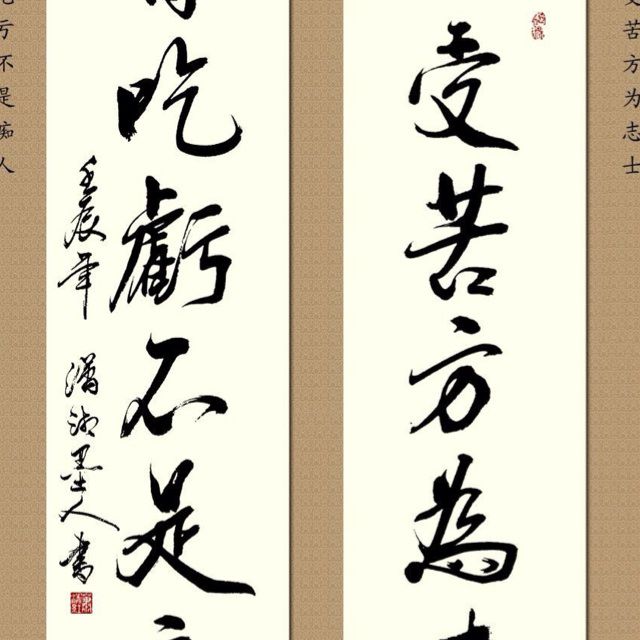 受苦方为志士
受苦方為
吃虧不是
壬辰年 瀟湘墨人書
吃亏不是痴人